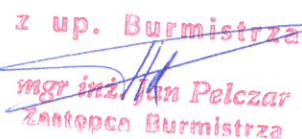 z up. Burmistrza
mgr inż. Jan Pelczar
Zastępca Burmistrza